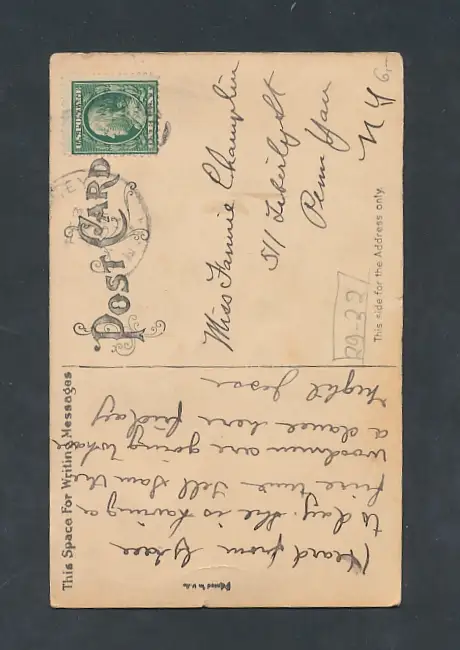 POST CARD
This Space For Writing Messages
This side for the Address only.
U.S. POSTAGE
ONE CENT
Miss Fannie Champlin
511 Liberty St
Penn Yan
N Y
6,-
29-22
Heard from Grace
to day. she is having a
fine time Tell Sam the
Woodmen are going to have
a dance here friday
night Jesse